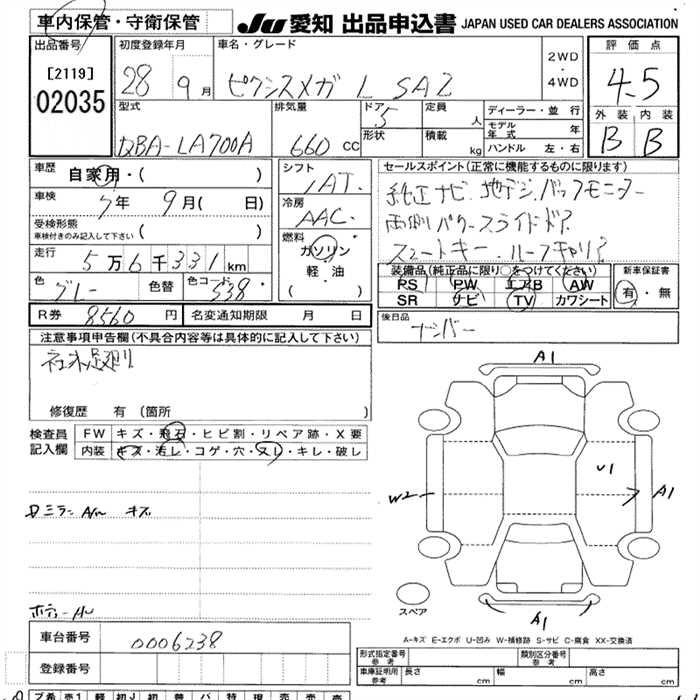 車内保管・守衛保管
JU 愛知 出品申込書 JAPAN USED CAR DEALERS ASSOCIATION
出品番号
[2119]
02035
初度登録年月
28 9月
車名・グレード
ピクシスメガ L SAⅡ
2WD
・
4WD
評価点
4.5
外装 内装
B B
型式
DBA-LA700A
排気量
660 cc
ドア 5
形状
定員 人
積載 kg
ディーラー・並行
モデル年式 年
ハンドル 左・右
車歴 自家用・( )
車検 年 9月( 日)
受検形態
車検付きのみ記入して下さい ( )
走行 5万6千331km
色 グレー 色替 色コード S38
シフト
IAT.
冷房
AAC.
燃料
ガソリン
軽・油
( )
セールスポイント(正常に機能するものに限ります)
純正ナビ.地デジ.バックモニター
両側パワースライドドア.
スマートキー.ルーフキャリア
装備品(純正品に限り○をつけてください)
PS PW エアB AW
SR ナビ TV カワシート
新車保証書
有・無
R券 8560 円 名変通知期限 月 日
後日品
ナンバー
注意事項申告欄(不具合内容等は具体的に記入して下さい)
修復歴 有(箇所 )
検査員
記入欄
FW キズ・飛石・ヒビ割・リペア跡・X要
内装 キズ・汚レ・コゲ・穴・スレ・キレ・破レ
ミラー A/U キズ
A1
U1
W2
A1
A1
スペア
A-キズ E-エクボ U-凹み W-補修跡 S-サビ C-腐食 XX-交換済
車台番号 0006238
登録番号
形式指定番号 参考
類別区分番号 参考
車庫証明用 参考 長さ cm 幅 cm 高さ cm